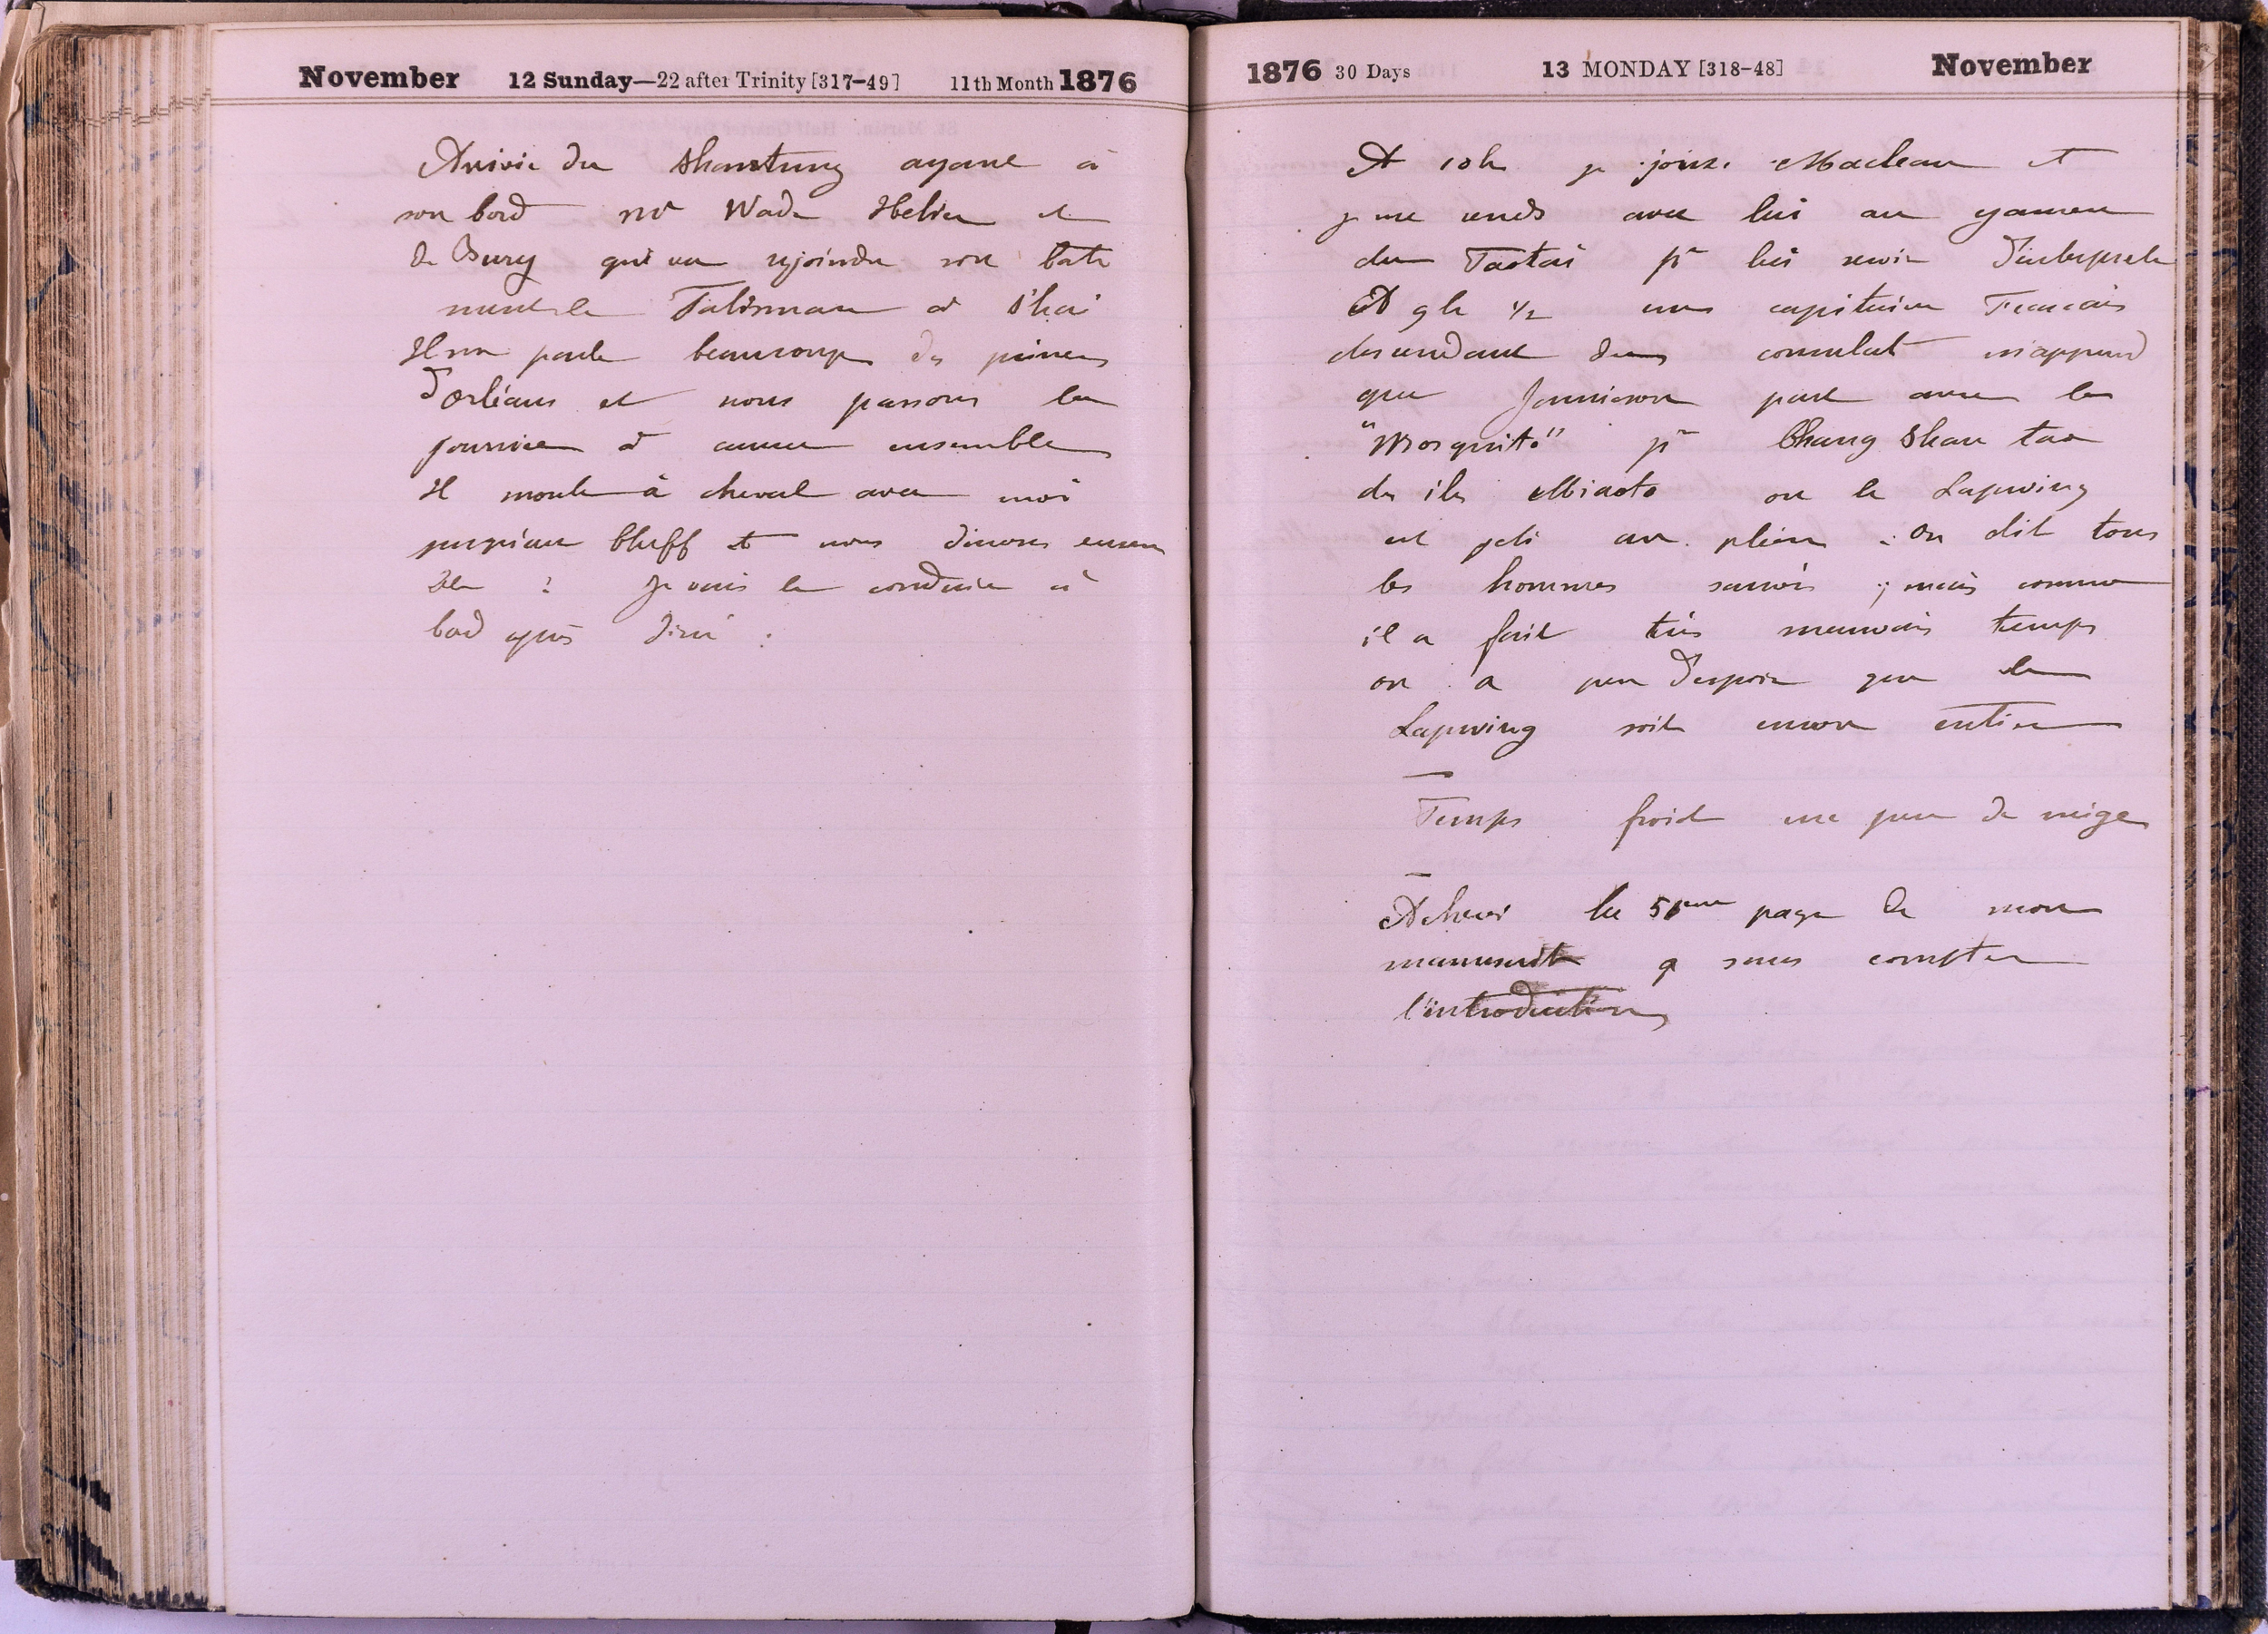 November 12 Sunday—22 after Trinity [317-49] 11th Month 1876
Arrivée du Shantung ayant à
son bord Mr Wade Helier et
de Bury qui va rejoindre son bati
ment le Talisman à S'hai
Il me parle beaucoup des princes
d'Orléans et nous passons la
journée à causer ensemble
Il monte à cheval avec moi
jusqu'au bluff et nous dinons ensem
ble : Je vais le conduire à
bord après diné :
1876 30 Days 13 MONDAY [318-48] November
A 10h je joins Maclean et
je me rends avec lui au yamen
du Taotai pr lui servir d'interprète
A 9h 1/2 un capitaine Francais
descendant du consulat m'apprend
que Jamieson part avec le
"Mosquito" pr Chang Shan tao
des iles Miaoto ou le Lapwing
est jeté au plein : On dit tous
les hommes sauvés ; mais comme
il a fait très mauvais temps
on a peu d'espoir que le
Lapwing soit encore entier
—
Temps froid un peu de neige
—
Achevé la page de mon
manuscrit sans compter
l'introduction